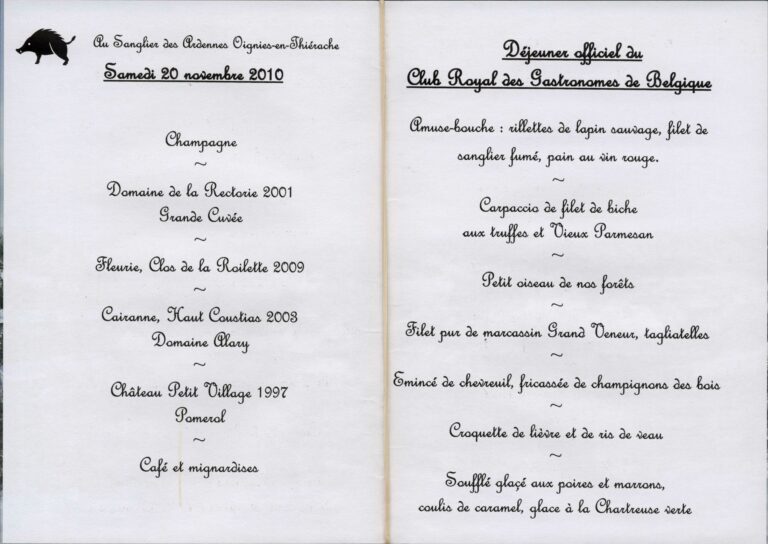 Au Sanglier des Ardennes Oignies-en-Thiérache
Samedi 20 novembre 2010
Champagne
~
Domaine de la Rectorie 2001
Grande Cuvée
~
Fleurie, Clos de la Roilette 2009
~
Cairanne, Haut Coustias 2003
Domaine Alary
~
Château Petit Village 1997
Pomerol
~
Café et mignardises
Déjeuner officiel du
Club Royal des Gastronomes de Belgique
Amuse-bouche : rillettes de lapin sauvage, filet de
sanglier fumé, pain au vin rouge.
~
Carpaccio de filet de biche
aux truffes et Vieux Parmesan
~
Petit oiseau de nos forêts
~
Filet pur de marcassin Grand Veneur, tagliatelles
~
Emincé de chevreuil, fricassée de champignons des bois
~
Croquette de lièvre et de ris de veau
~
Soufflé glaçé aux poires et marrons,
coulis de caramel, glace à la Chartreuse verte